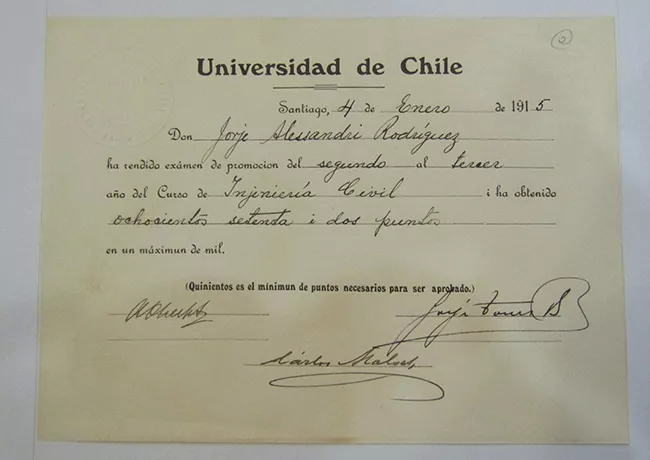 Universidad de Chile
Santiago, 4 de Enero de 1915
Don Jorje Alessandri Rodríguez
ha rendido exámen de promocion del segundo al tercer
año del Curso de Injeniería Civil i ha obtenido
ochocientos setenta i dos puntos
en un máximun de mil.
(Quinientos es el mínimun de puntos necesarios para ser aprobado.)
Jorje
Cárlos